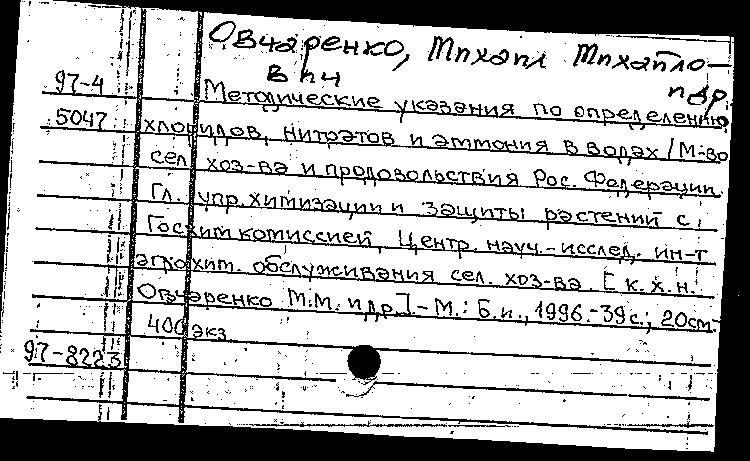 Овчаренко, Михаил Михайло-
вич
и др.
97-4 Методические указания по определению
5047 хлоридов, нитратов и аммония в водах / М-во
сел. хоз-ва и продовольствия Рос. Федерации.
Гл. упр. химизации и защиты растений с
Госхимкомиссией, Центр. науч.-исслед. ин-т
агрохим. обслуживания сел. хоз-ва. [к. х. н.
Овчаренко М.М. и др.]. - М.: Б.и., 1996. - 39 с.; 20 см. -
400 экз.
97-8223